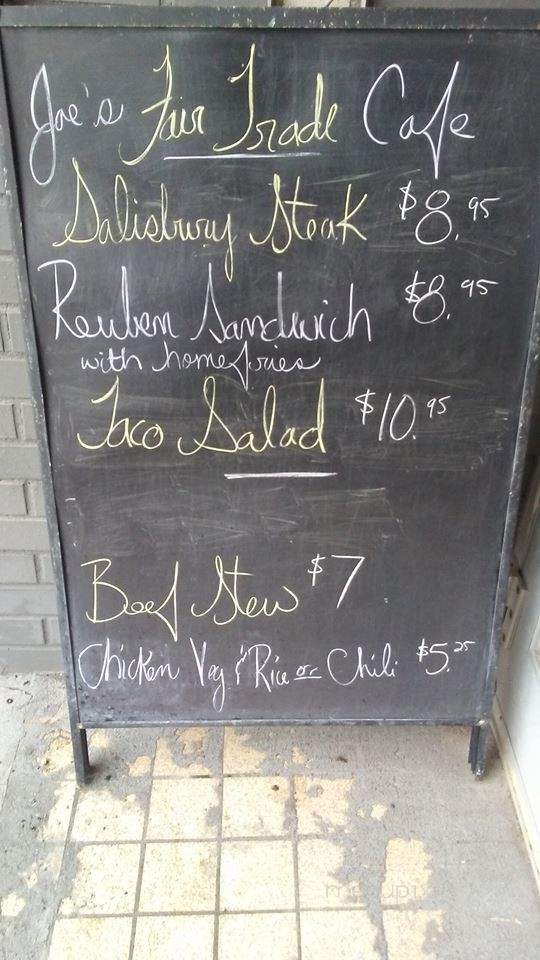 Joe's Fair Trade Cafe
Salisbury Steak $8.95
Reuben Sandwich $8.95
with homefries
Taco Salad $10.95
Beef Stew $7
Chicken Veg & Rice or Chili $5.25